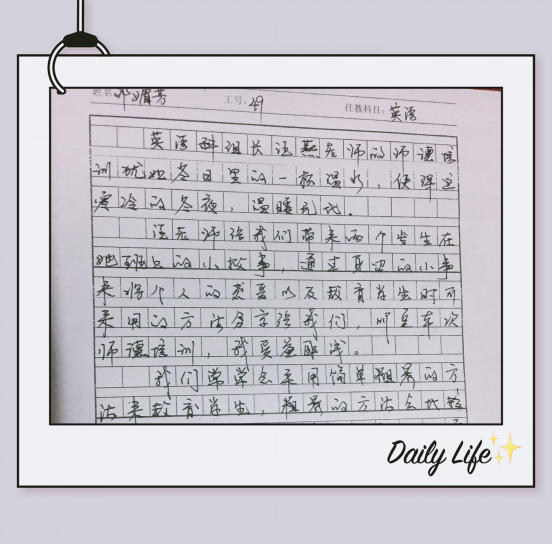 姓名: 邓媚芳 工号: 49 任教科目: 英语
英语科组长汪燕老师的师德培
训犹如冬日里的一杯温水，使得这
寒冷的冬夜，温暖无比。
汪老师给我们带来两个发生在
她班上的小故事，通过身边的小事
来将个人的感受以及教育学生时可
采用的方法分享给我们，听完本次
师德培训，我受益匪浅。
我们常常会采用简单粗暴的方
法来教育学生，粗暴的方法会比较
Daily Life